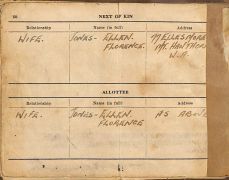 NEXT OF KIN
Relationship Name (in full) Address
WIFE. JONES - ELLEN. 77 ELLESMERE
FLORENCE. MT. HAWTHORN
W.A.
ALLOTTEE
Relationship Name (in full) Address
WIFE. JONES - ELLEN. AS ABOVE
FLORENCE